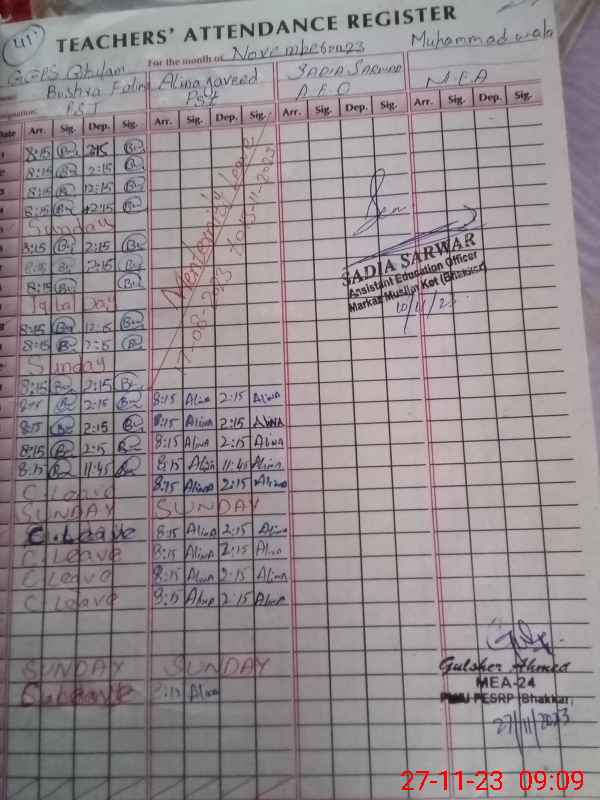 411
TEACHERS' ATTENDANCE REGISTER
For the month of November 2023 Muhammad wala
G.GPS Ghulam
Bushra Alina javeed SADIA SARWAR M.E.A
PST PST A.E.O
Date Arr. Sig. Dep. Sig. Arr. Sig. Dep. Sig. Arr. Sig. Dep. Sig. Arr. Sig. Dep. Sig.
8:15 2:15
8:15 2:15
8:15 12:15
8:15 12:15
Sunday
8:15 2:15
8:15 2:15
8:15
Iqbal Day
8:15 12:15
8:15 2:15
Sunday
Leave
17-08-2023 to 13-11-2023
SADIA SARWAR
Assistant Education Officer
Markaz Muslim Kot (Bhakkar)
10/11/23
8:15 2:15
8:15 2:15 8:15 Alina 2:15 Alina
8:15 2:15 8:15 Alina 2:15 Alina
8:15 2:15 8:15 Alina 2:15 Alina
8:15 11:45 8:15 Alina 11:45 Alina
C.Leave 8:15 Alina 2:15 Alina
SUNDAY SUNDAY
C.Leave 8:15 Alina 2:15 Alina
C.Leave 8:15 Alina 2:15 Alina
C.Leave 8:15 Alina 2:15 Alina
C.Leave 8:15 Alina 2:15 Alina
SUNDAY SUNDAY
C.Leave 8:15 Alina
Gulsher Ahmed
MEA-24
PMIU PESRP (Bhakkar)
27/11/2023
27-11-23 09:09